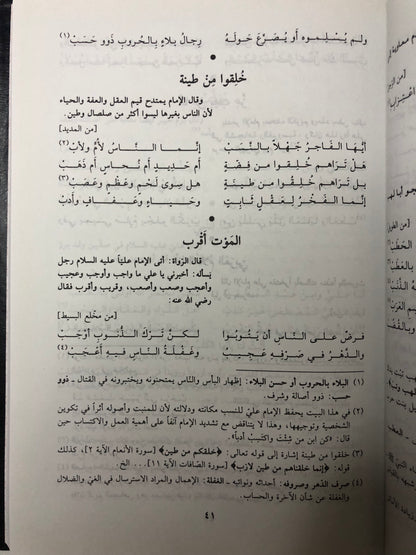 ولم يُسْلِموه أو يُصَرَّعَ حَولَهُ رِجالُ بلاءٍ بِالحُروبِ ذَوو حَسَبْ (١)
خُلِقوا مِنْ طينة
وقال الإمام يمتدح قيم العقل والعفة والحياء
لأن الناس بغيرها ليسوا أكثر من صلصال وطين.
[من المديد]
أيُّها الفَاخِرُ جَهْلاً بِالنَّسَبْ إنَّما النَّاسُ لأُمٍّ ولأَبْ (٢)
هَلْ تَراهُم خُلِقوا مِن فِضَّة أم حَديدٍ أم نُحاسٍ أم ذَهَبْ
بل تَراهُم خُلِقوا من طينةٍ هل سِوى لَحْمٍ وعَظْمٍ وعَصَبْ (٣)
إنَّما الفَخْرُ لِعَقْلٍ ثابِتٍ وحَياءٍ وعَفافٍ وأدَبْ
المَوْت أقْرب
قال الرّواة: أتى الإمام عليّاً عليه السلام رجل
يسأله: أخبرني يا علي ما واجب وأوجب وعجيب
وأعجب وصعب وأصعب، وقريب وأقرب فقال
رضي الله عنه:
[من مخلع البسيط]
فرضٌ على النَّاسِ أن يَتُوبُوا لكنَّ تَرْكَ الذُّنوبِ أوْجَبْ
والدَّهْرُ في صَرْفِهِ عَجيبٌ وغَفْلَةُ النَّاسِ فيهِ أَعْجَبْ (٤)
(١) البلاء بالحروب أو حسن البلاء: إظهار البأس والنّاس يمتحنونه ويختبرونه في القتال ـ ذوو
حسب: ذوو أصالة وشرف.
(٢) في هذا البيت يحفظ الإمام عليّ للنسب مكانته ودلالته لأن للمنبت وأصوله أثراً في تكوين
الشخصية وتوجيهها، وهذا لا يتنافى مع تشديد الإمام آنفاً على أهمية العمل والاكتساب حين
قال: «كن ابن من شِئتَ واكتَسِبْ أدباً».
(٣) خلقوا من طينة إشارة إلى قوله تعالى: ﴿خلقكم من طين﴾ [سورة الأنعام الآية ٢]، كذلك
قوله: ﴿إنما خلقناهم من طين لازب﴾ [سورة الصّافات الآية ١١] ... الخ.
(٤) صرف الدّهر وصروفه: أحداثه ونوائبه ـ الغفلة: الإهمال والمراد الاسترسال في الغيّ والضلال
والغفلة عن شأن الآخرة والحساب.
٤١